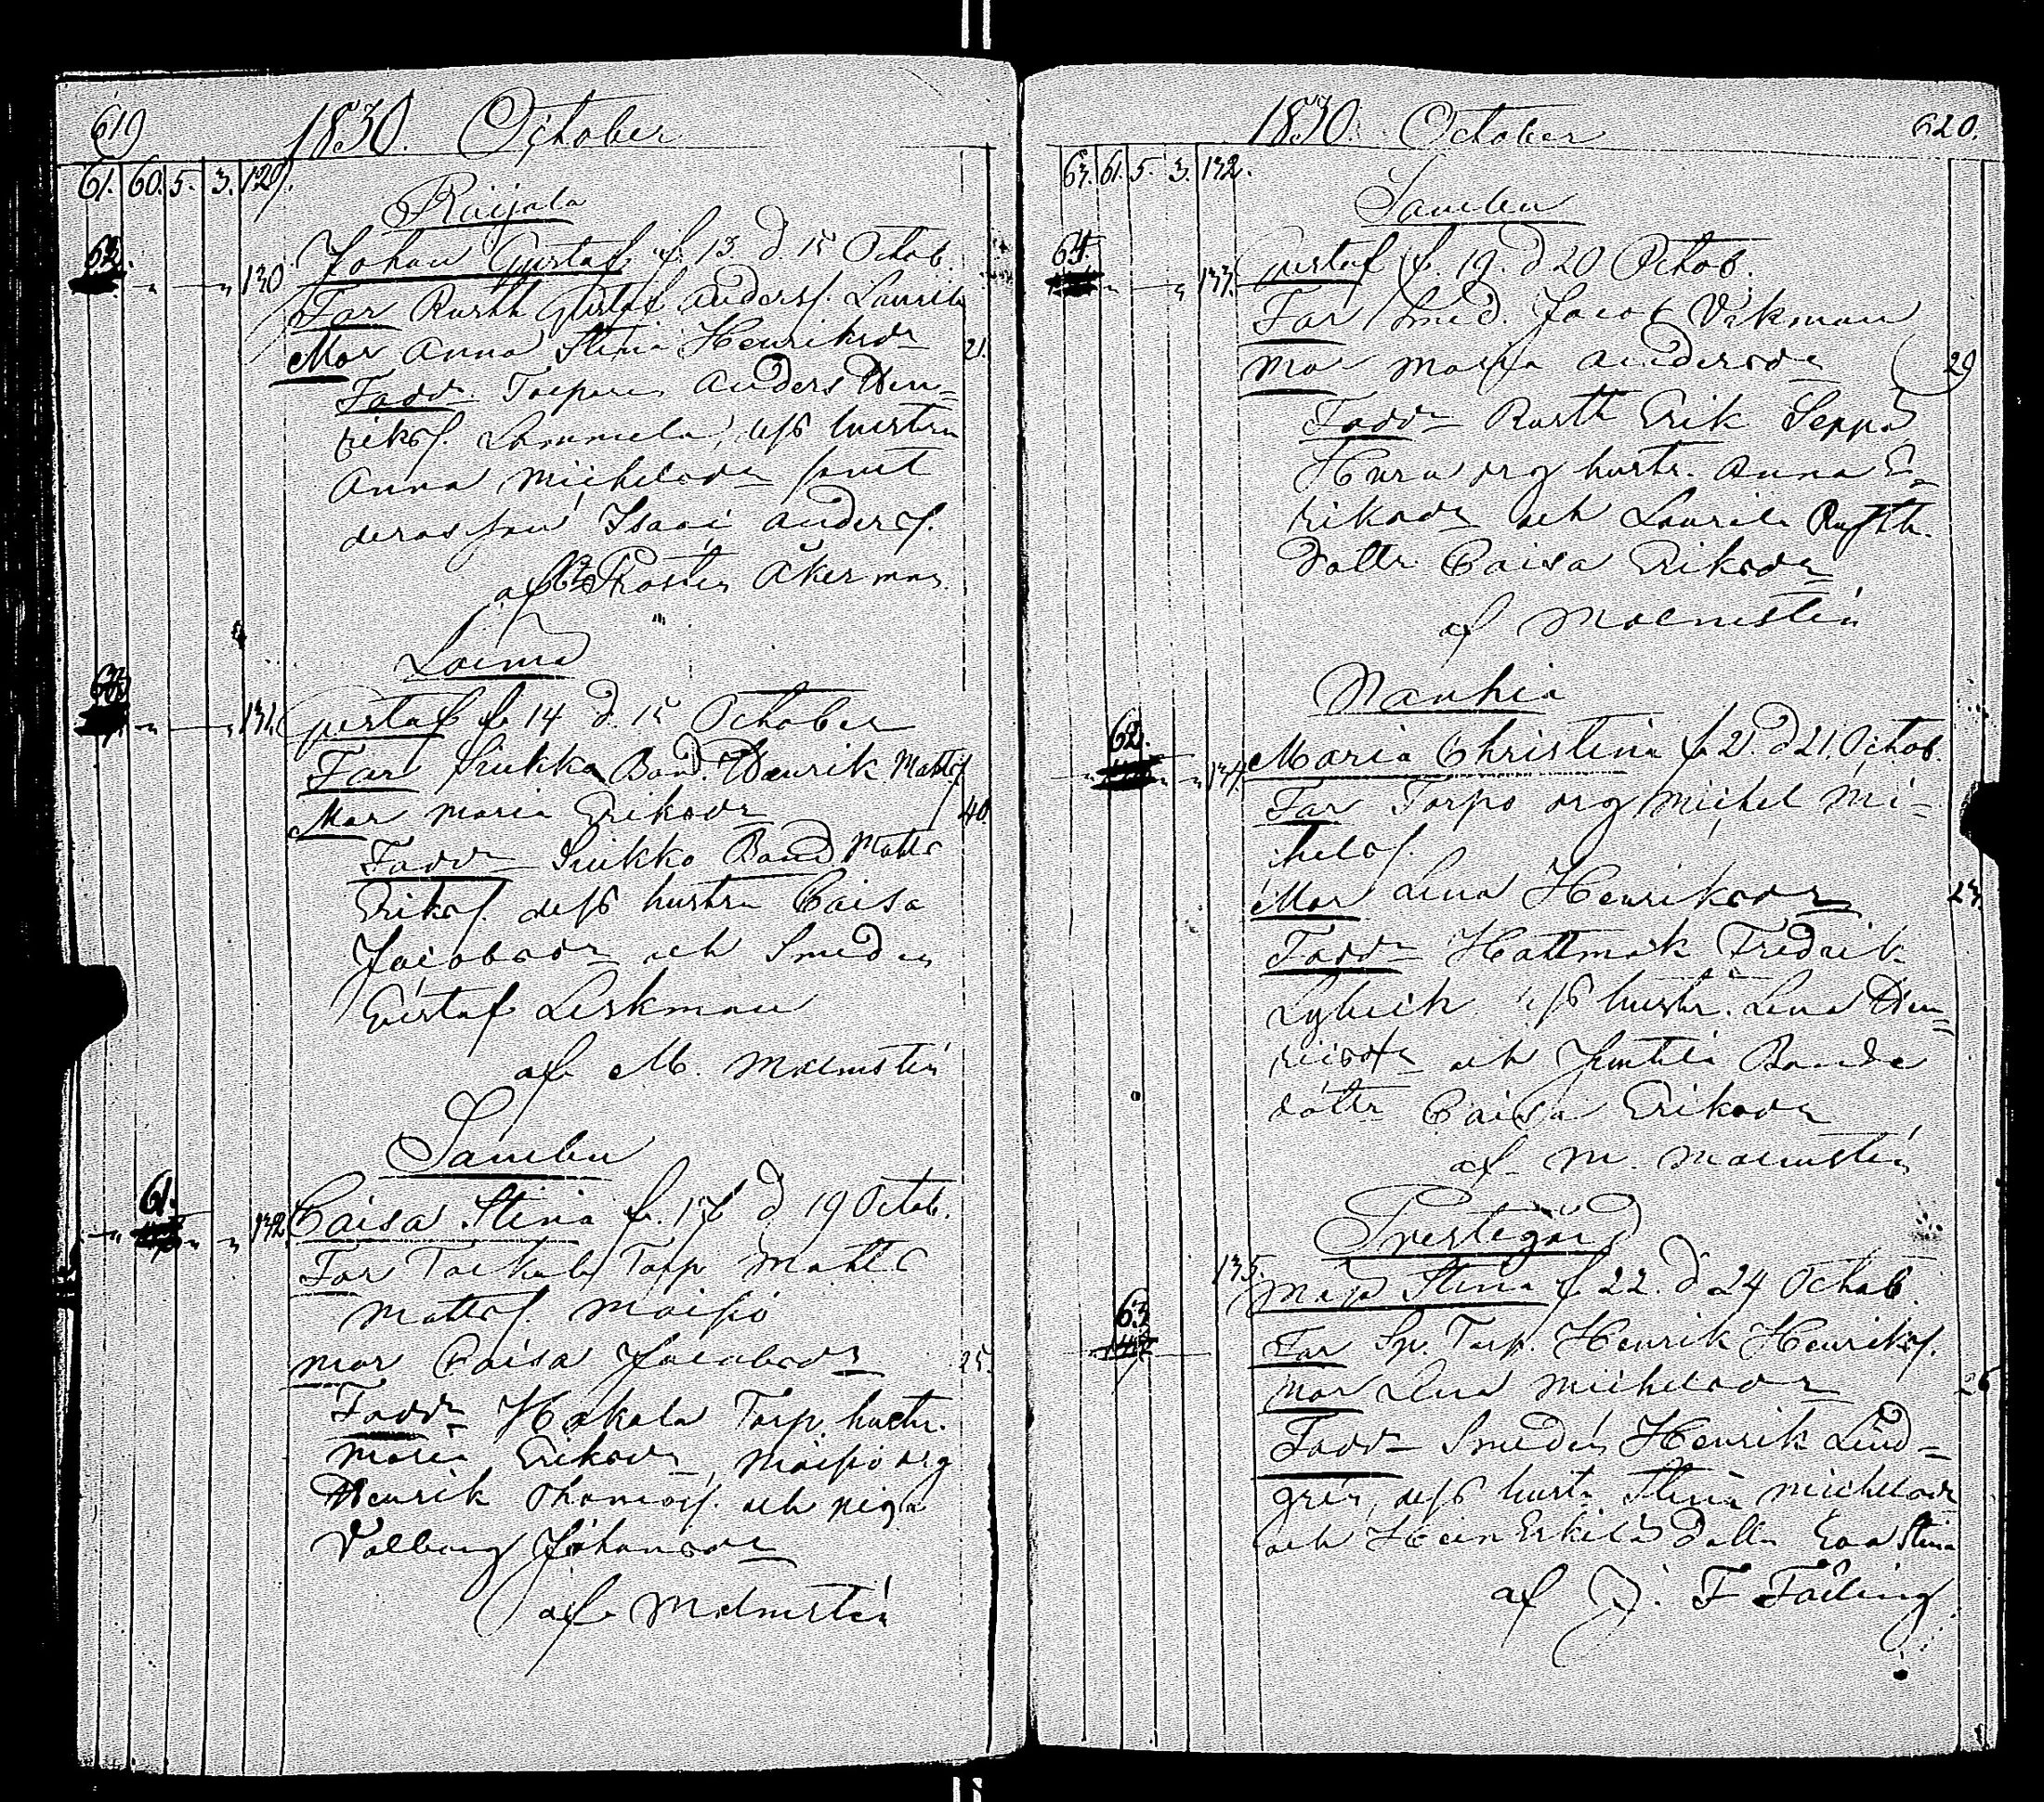 619
1830. October
61. 60. 5. 3. 129.
Raijala
62.
130 Johan Gustaf f. 13 d. 15 Octob.
Far Rusth Gustaf Anders. Laurila
Mor Anna Stina Henriksdr 21.
Faddr Torparen Anders Hen=
riks. Lammela, dess hustru
Anna Michelsdr samt
deras son Isaac Anders.
af Prosten Åkerman
Loima
63
131. Gustaf f. 14 d. 15 October
Far Siukka Bond. Henrik Matts.
Mor Maria Eriksdr 40.
Faddr Siukko Bond Matts
Eriks. dess hustru Caisa
Jacobsdr och Smeden
Gustaf Lerkman
af M. Malmsten
Sambu
61.
132. Caisa Stina f. 17 d 19 Octob.
Far Torp Matts
Matts. Maisio
Mor Caisa Jacobsdr 25.
Faddr Hakala Torp. hustr.
Maria Eriksdr, Maisio drg
Henrik Thomas. och piga
Valborg Johansdr
af Malmsten
1830. October 620.
63. 61. 5. 3. 132.
Sambu
64.
133. Gustaf f. 19. d 20 Octob.
Far Smed. Jacob Vikman
Mor Maja Andersdr 29
Faddr Rusth Erik Seppä
Huru drg hustr. Anna E=
riksdr och Laurila Rusth.
dottr Caisa Eriksdr
af Malmsten
Nanhia
62.
134. Maria Christina f 21. d 21. Octob.
Far Torpo drg Michel Mi=
chels.
Mor Lena Henriksdr 23.
Faddr Hattmak Fredrik
Lybeck dess hustr. Lena Hen=
ricsdr och Juntila Bonde
dottr Caisa Eriksdr
af M. Malmsten
Prestegård
135. Maja Stina f 22. d 24 Octob.
63
Far Sp. Torp. Henrik Henriks.
Mor Lena Michelsdr 26
Faddr Smeden Henrik Lind=
gren, dess hustr Stina Michelsdr
och Hein Erkilä dottr Eva Stina
af J. F Fäling